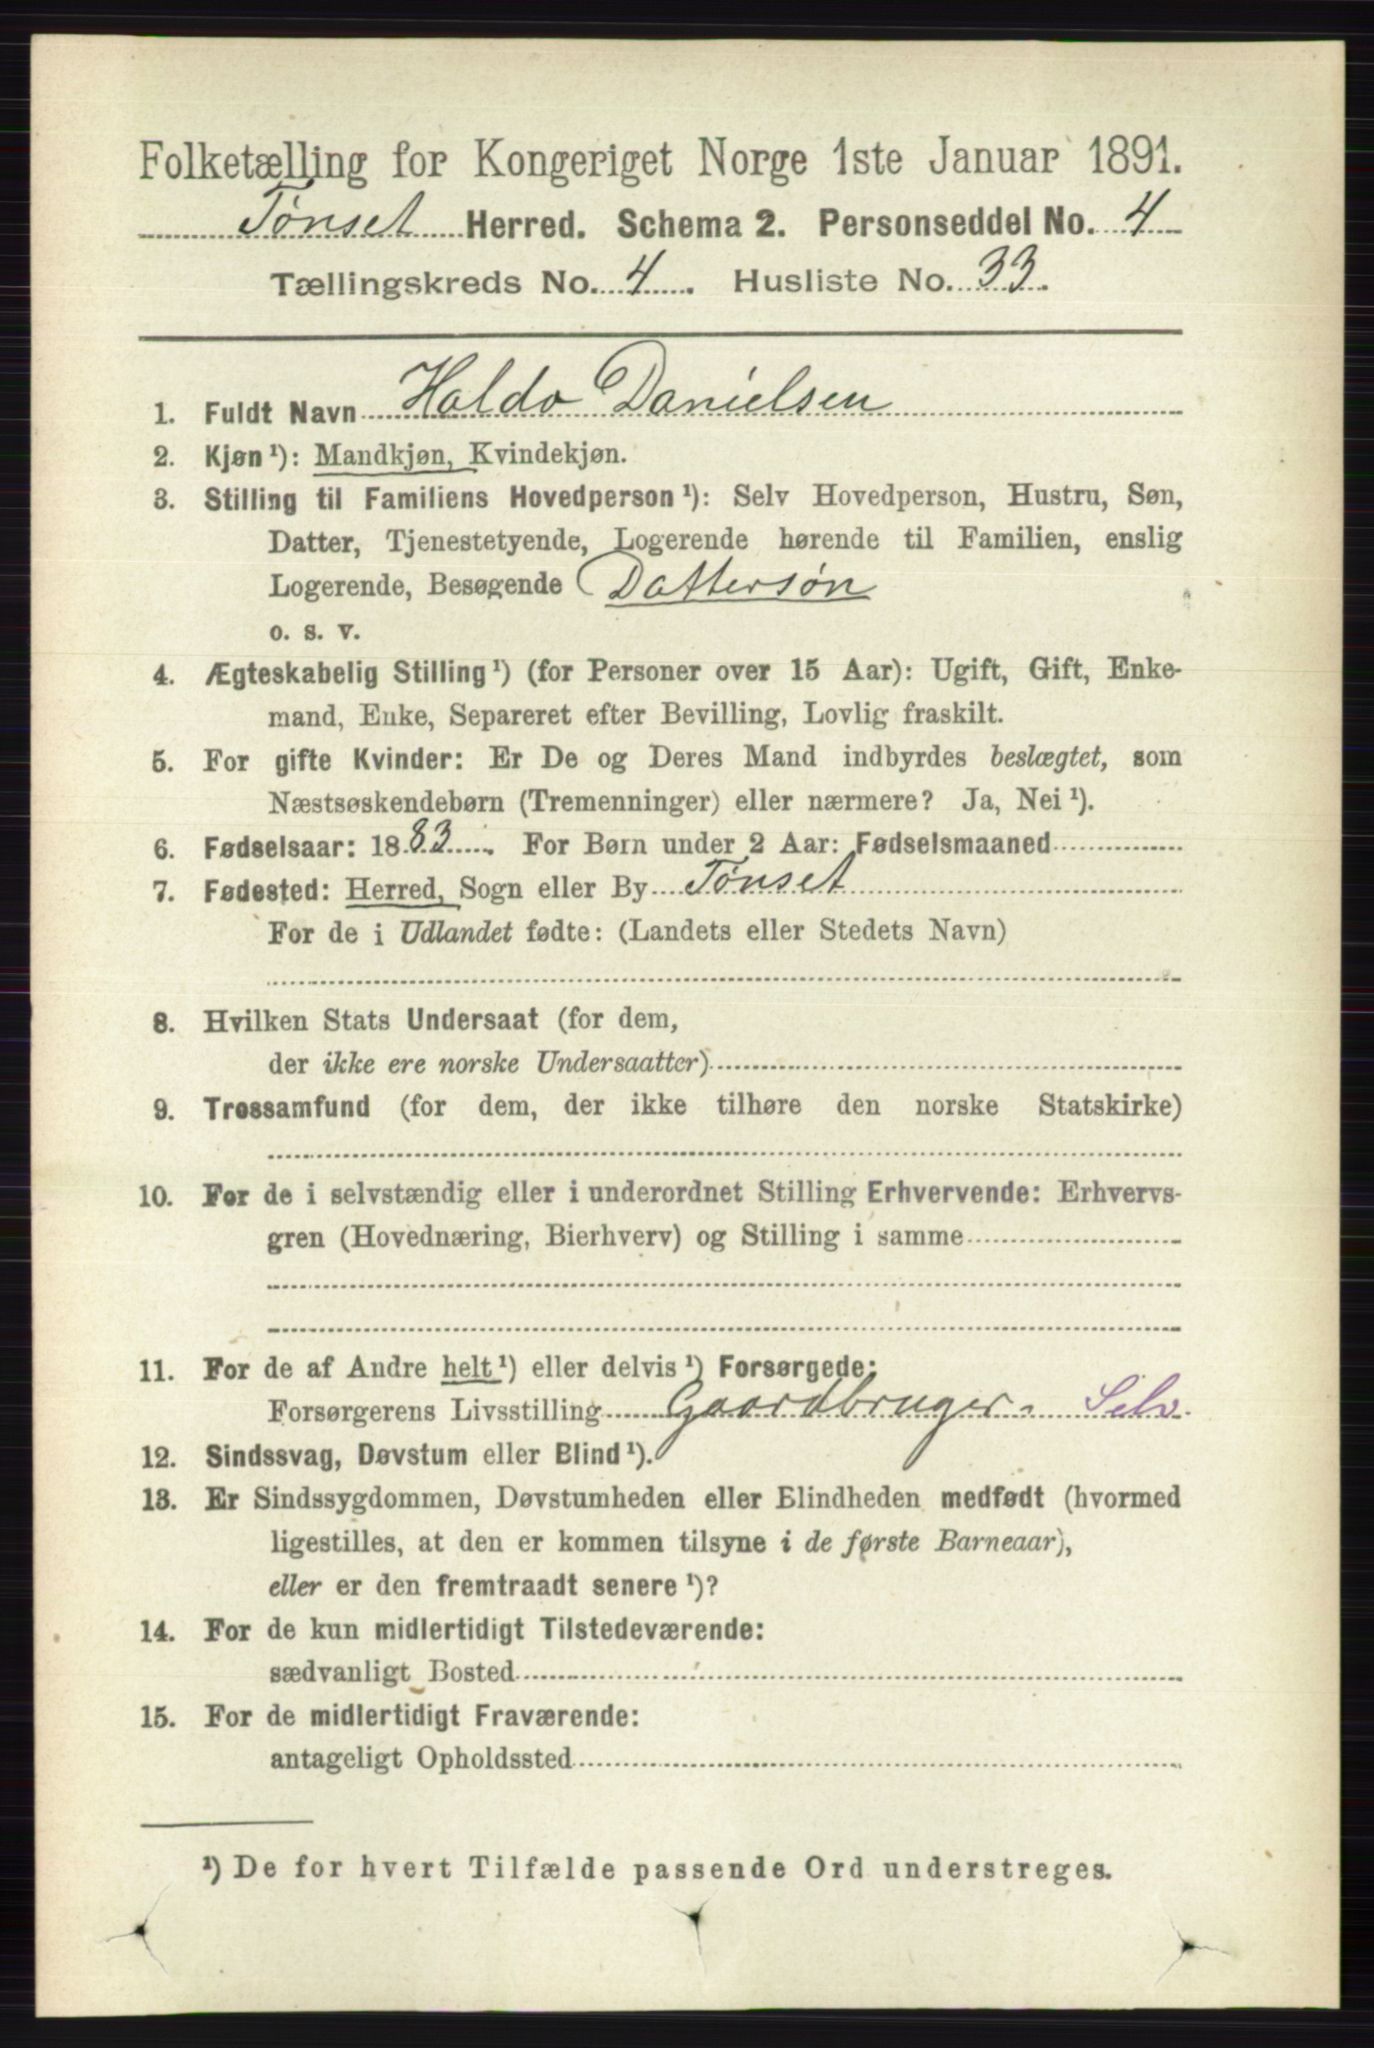 Folketælling for Kongeriget Norge 1ste Januar 1891.
Tønset Herred. Schema 2. Personseddel No. 4
Tællingskreds No. 4. Husliste No. 33.
1. Fuldt Navn Haldo Danielsen
2. Kjøn¹): Mandkjøn, Kvindekjøn.
3. Stilling til Familiens Hovedperson¹): Selv Hovedperson, Hustru, Søn,
Datter, Tjenestetyende, Logerende hørende til Familien, enslig
Logerende, Besøgende Dattersøn
o. s. v.
4. Ægteskabelig Stilling¹) (for Personer over 15 Aar): Ugift, Gift, Enke-
mand, Enke, Separeret efter Bevilling, Lovlig fraskilt.
5. For gifte Kvinder: Er De og Deres Mand indbyrdes beslægtet, som
Næstsøskendebørn (Tremenninger) eller nærmere? Ja, Nei¹).
6. Fødselsaar: 1883. For Børn under 2 Aar: Fødselsmaaned
7. Fødested: Herred, Sogn eller By Tønset
For de i Udlandet fødte: (Landets eller Stedets Navn)
8. Hvilken Stats Undersaat (for dem,
der ikke ere norske Undersaatter)
9. Trossamfund (for dem, der ikke tilhøre den norske Statskirke)
10. For de i selvstændig eller i underordnet Stilling Erhvervende: Erhvervs-
gren (Hovednæring, Bierhverv) og Stilling i samme
11. For de af Andre helt¹) eller delvis¹) Forsørgede:
Forsørgerens Livsstilling Gaardbruger. Selv.
12. Sindssvag, Døvstum eller Blind¹).
13. Er Sindssygdommen, Døvstumheden eller Blindheden medfødt (hvormed
ligestilles, at den er kommen tilsyne i de første Barneaar),
eller er den fremtraadt senere¹)?
14. For de kun midlertidigt Tilstedeværende:
sædvanligt Bosted
15. For de midlertidigt Fraværende:
antageligt Opholdssted
¹) De for hvert Tilfælde passende Ord understreges.